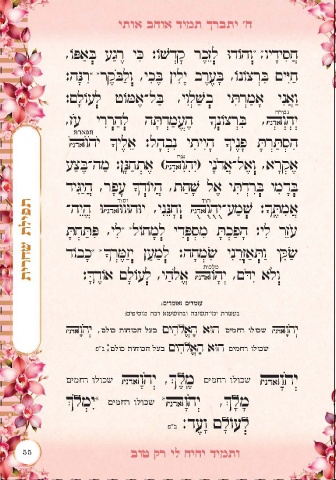 ה' יתברך תמיד אוהב אותי
חֲסִידָיו, וְהוֹדוּ לְזֵכֶר קָדְשׁוֹ: כִּי רֶגַע בְּאַפּוֹ,
חַיִּים בִּרְצוֹנוֹ, בָּעֶרֶב יָלִין בֶּכִי, וְלַבֹּקֶר רִנָּה:
וַאֲנִי אָמַרְתִּי בְשַׁלְוִי, בַּל־אֶמּוֹט לְעוֹלָם:
יְהֹוָה, בִּרְצוֹנְךָ הֶעֱמַדְתָּה לְהַרְרִי עֹז,
הִסְתַּרְתָּ פָנֶיךָ הָיִיתִי נִבְהָל: אֵלֶיךָ יְהֹוָה
אֶקְרָא, וְאֶל־אֲדֹנָי (יְהֹוָה) אֶתְחַנָּן: מַה־בֶּצַע
בְּדָמִי בְּרִדְתִּי אֶל שָׁחַת, הֲיוֹדְךָ עָפָר, הֲיַגִּיד
אֲמִתֶּךָ: שְׁמַע־יְהֹוָה וְחָנֵּנִי, יְהֹוָה הֱיֵה־
עֹזֵר לִי: הָפַכְתָּ מִסְפְּדִי לְמָחוֹל לִי, פִּתַּחְתָּ
שַׂקִּי וַתְּאַזְּרֵנִי שִׂמְחָה: לְמַעַן יְזַמֶּרְךָ כָבוֹד
וְלֹא יִדֹּם, יְהֹוָה אֱלֹהַי, לְעוֹלָם אוֹדֶךָּ:
עומדים ואומרים:
בעשרת ימי תשובה ובהושענא רבה מוסיפים:
יְהֹוָה שכולו רחמים הוּא הָאֱלֹהִים בעל הכוחות כולם, יְהֹוָה
שכולו רחמים הוּא הָאֱלֹהִים בעל הכוחות כולם: ב"פ
יְהֹוָה שכולו רחמים מֶלֶךְ, יְהֹוָה שכולו רחמים
מָלָךְ, יְהֹוָה שכולו רחמים יִמְלֹךְ
לְעוֹלָם וָעֶד: ב"פ
ותמיד יהיה לי רק טוב
תפילת שחרית
55